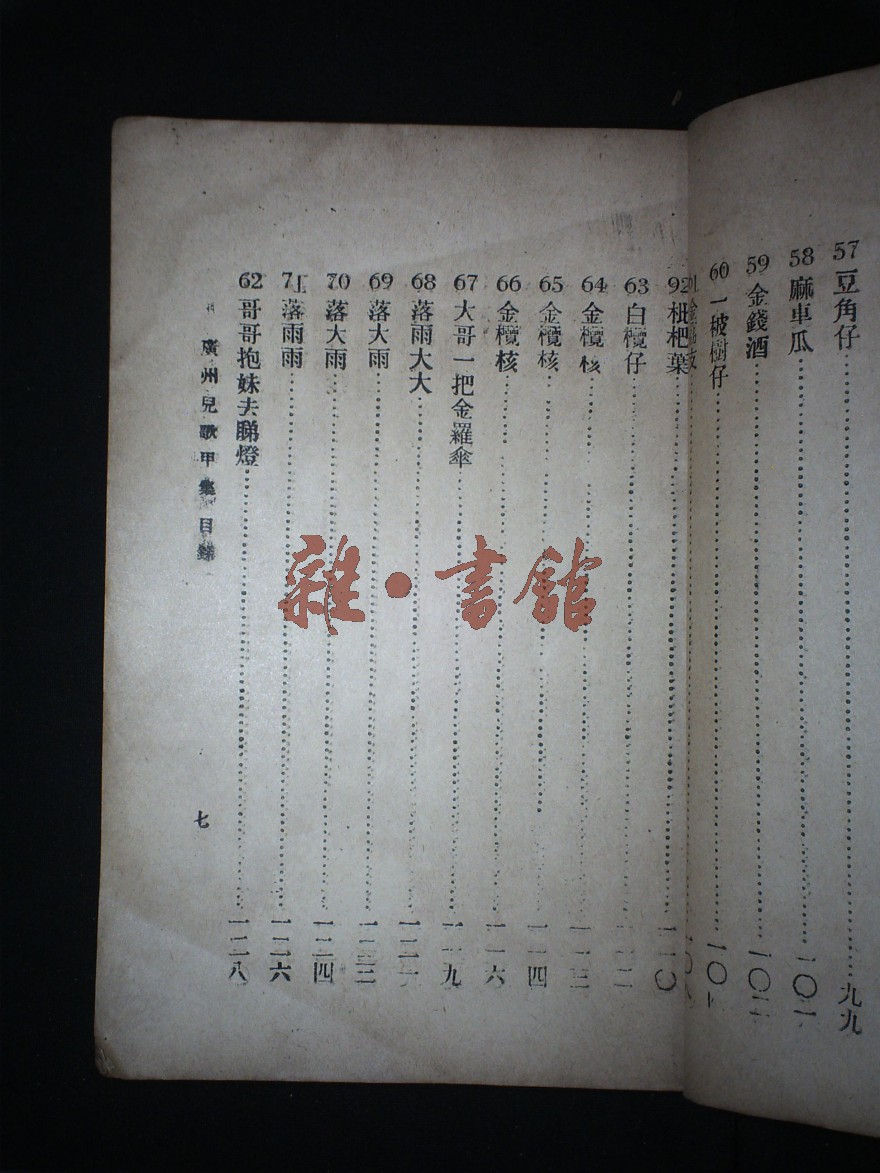 57 豆角仔……九九
58 麻車瓜……一〇一
59 金錢酒……一〇二
60 一枝樹仔……一〇
92 枇杷葉……一一〇
63 白欖仔……一一二
64 金欖核……一一三
65 金欖核……一一四
66 金欖核……一一六
67 大哥一把金羅傘……一一九
68 落雨大大……一二一
69 落大雨……一二三
70 落大雨……一二四
71 落雨雨……一二六
62 哥哥抱妹去睇燈……一二八
廣州兒歌甲集 目錄
七
雜・書館